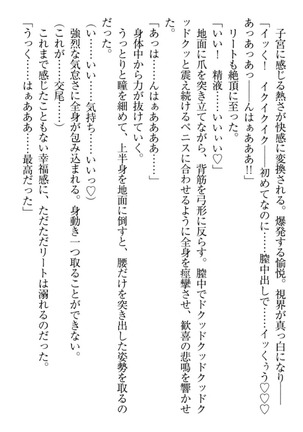 子宮に感じる熱さが快感に変換される。爆発する愉悦。視界が真っ白になり
「イッく！　イクイクイク――初めてなのに……膣中出しで……イッくぅう♡♡♡
あっあっあっ――んはぁぁああ!!」
リートも絶頂に至った。
「いい！　精液……いいい♡」
地面に爪を突き立てながら、背筋を弓形に反らす。膣中でドクッドクッドクッド
ッドクッと震え続けるペニスに合わせるように全身を痙攣させ、歓喜の悲鳴を響かせ
た。
「あっは……んはぁああああ……」
身体中から力が抜けていく。
うっとりと瞳を細めて、上半身を地面に倒すと、腰だけを突き出した姿勢を取るの
だった。
「い……いい……気持ち……いいっ♡」
（これが……交尾……）
強烈な気怠さに全身が包み込まれる。身動き一つ取ることができない。
これまで感じたこともない幸福感に、ただただリートは溺れるのだった。
「うっく……はぁああ……最高だった」